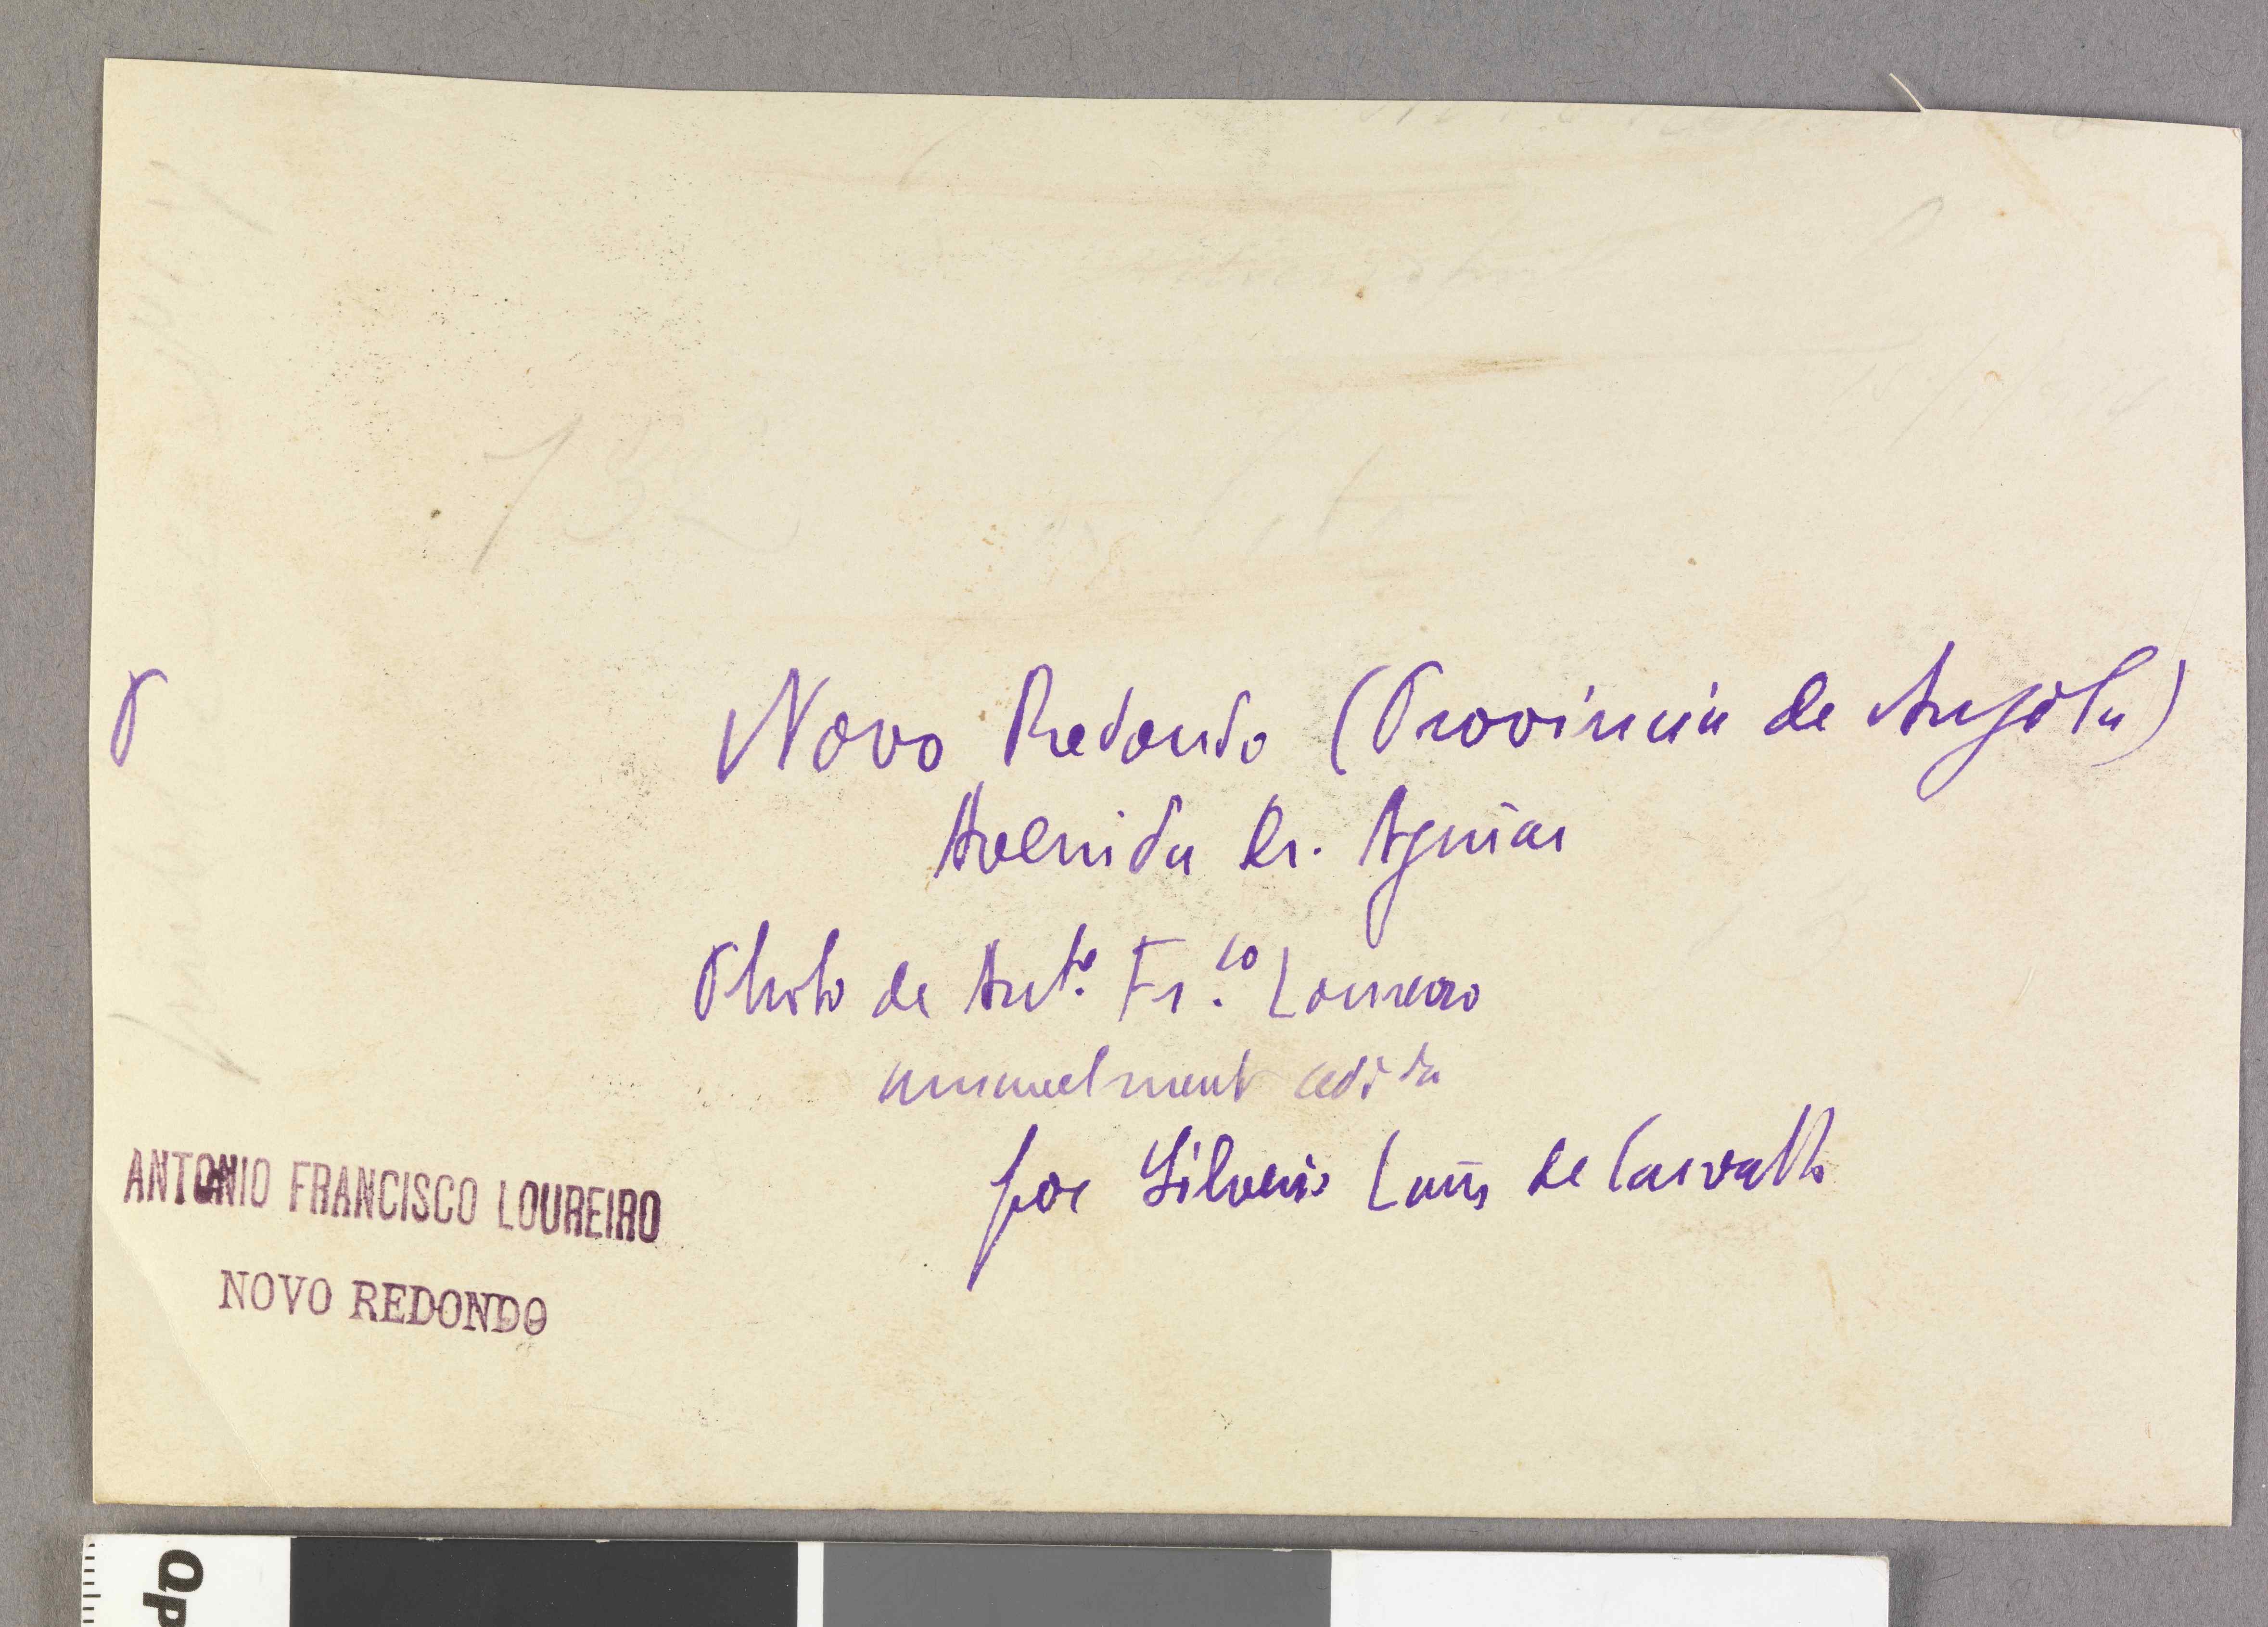 P
Novo Redondo (Provincia de Angola)
Avenida Dr. Aguiar
Photo de Antº. Fr.co Loureiro
amavelmente cedida
por Silverio Luiz de Carvalho
ANTONIO FRANCISCO LOUREIRO
NOVO REDONDO
132
Op